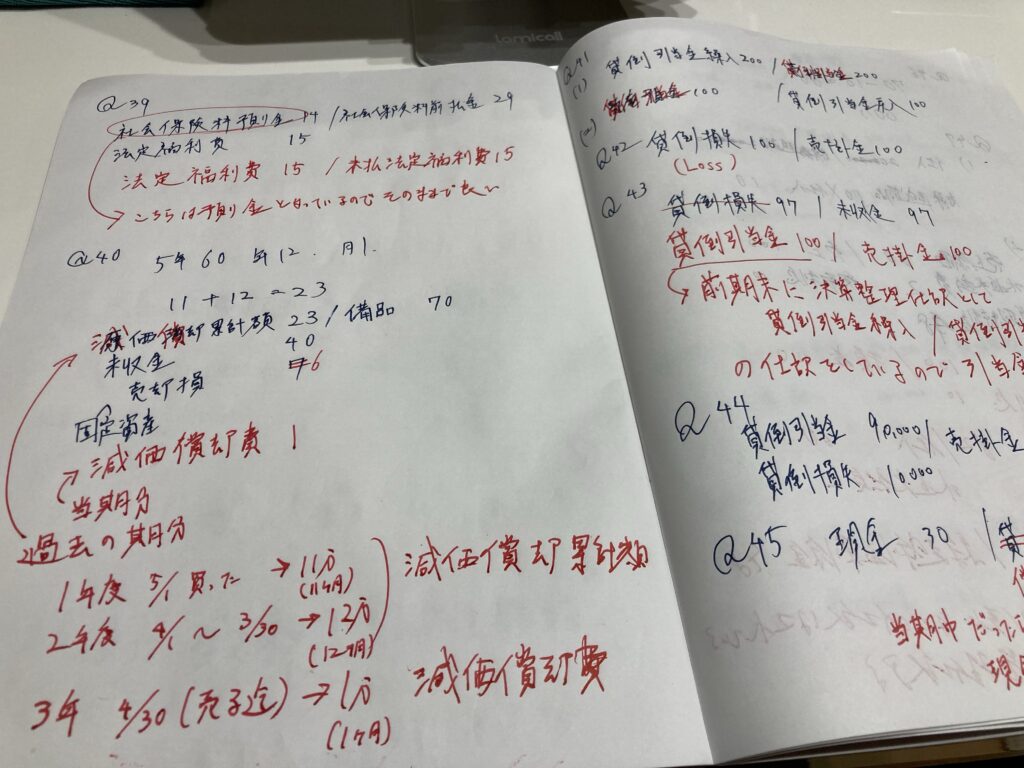 lamicall
Q39
社会保険料預り金 14 / 社会保険料前払金 29
法定福利費 15
法定福利費 15 / 未払法定福利費 15
こちらは預り金と言っているのでそのままで良い
Q40 5年 60 年12. 月1.
11 + 12 = 23
減価償却累計額 23 / 備品 70
未収金 40
売却損 6
固定資産
減価償却費 1
当期分
過去の期分
1年度 5/1 買った → 11万 (11ヶ月)
2年度 4/1 〜 3/30 → 12万 (12ヶ月)
減価償却累計額
3年 4/30 (売る迄) → 1万 (1ヶ月) 減価償却費
Q41
(1) 貸倒引当金繰入 200 / 貸倒引当金 200
(2) 貸倒引当金 100 / 貸倒引当金戻入 100
Q42 貸倒損失 100 / 売掛金 100
(Loss)
Q43
貸倒損失 97 / 未収金 97
貸倒引当金 100 / 売掛金 100
前期末に決算整理仕訳として
貸倒引当金繰入 / 貸倒引当
の仕訳をしているので引当金
Q44
貸倒引当金 90,000 / 売掛金
貸倒損失 10,000
Q45 現金 30 / 貸
当期中だった
現